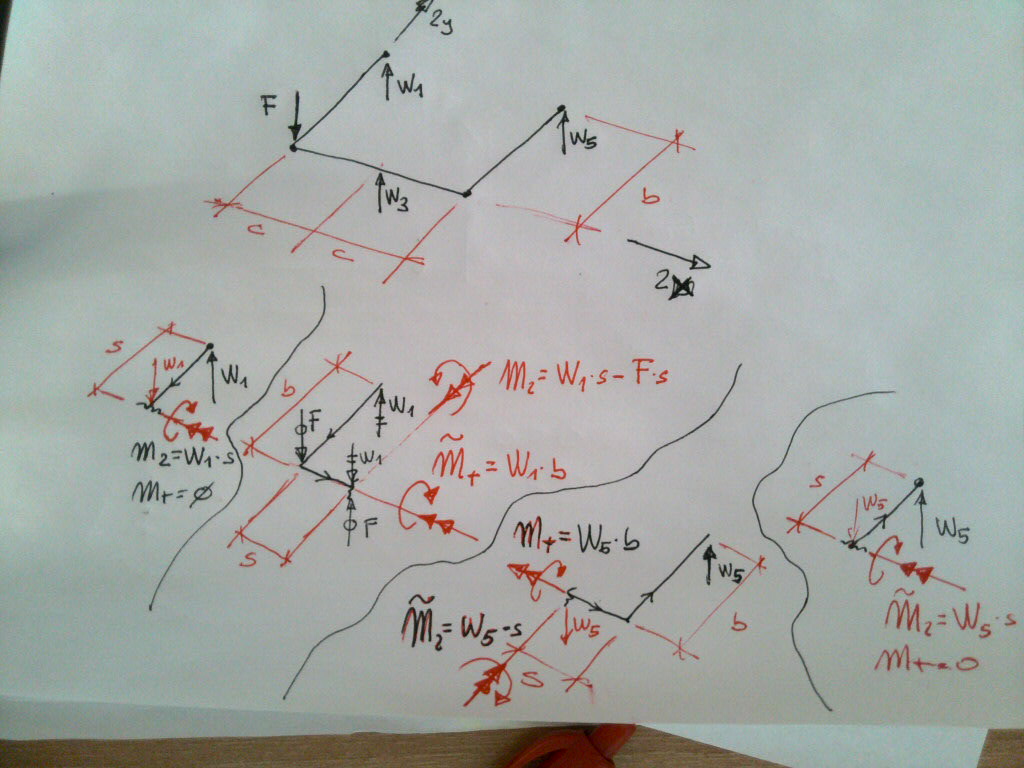 2y
F
W1
W5
W3
b
c
c
2
s
W1
W1
M2=W1·s
Mt=∅
b
F
W1
W1
F
s
M2=W1·s-F·s
M̃t=W1·b
Mt=W5·b
W5
b
W5
M̃2=W5·s
s
s
W5
W5
M̃2=W5·s
Mt=0